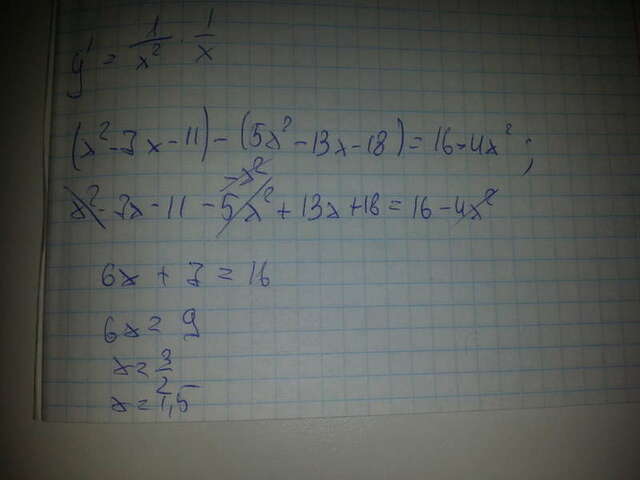 y' = 1/x² · 1/x
(x² - 7x - 11) - (5x² - 13x - 18) = 16 - 4x² ;
-x²
x² - 7x - 11 - 5x² + 13x + 18 = 16 - 4x²
6x + 7 = 16
6x = 9
x = 3/2
x = 1,5